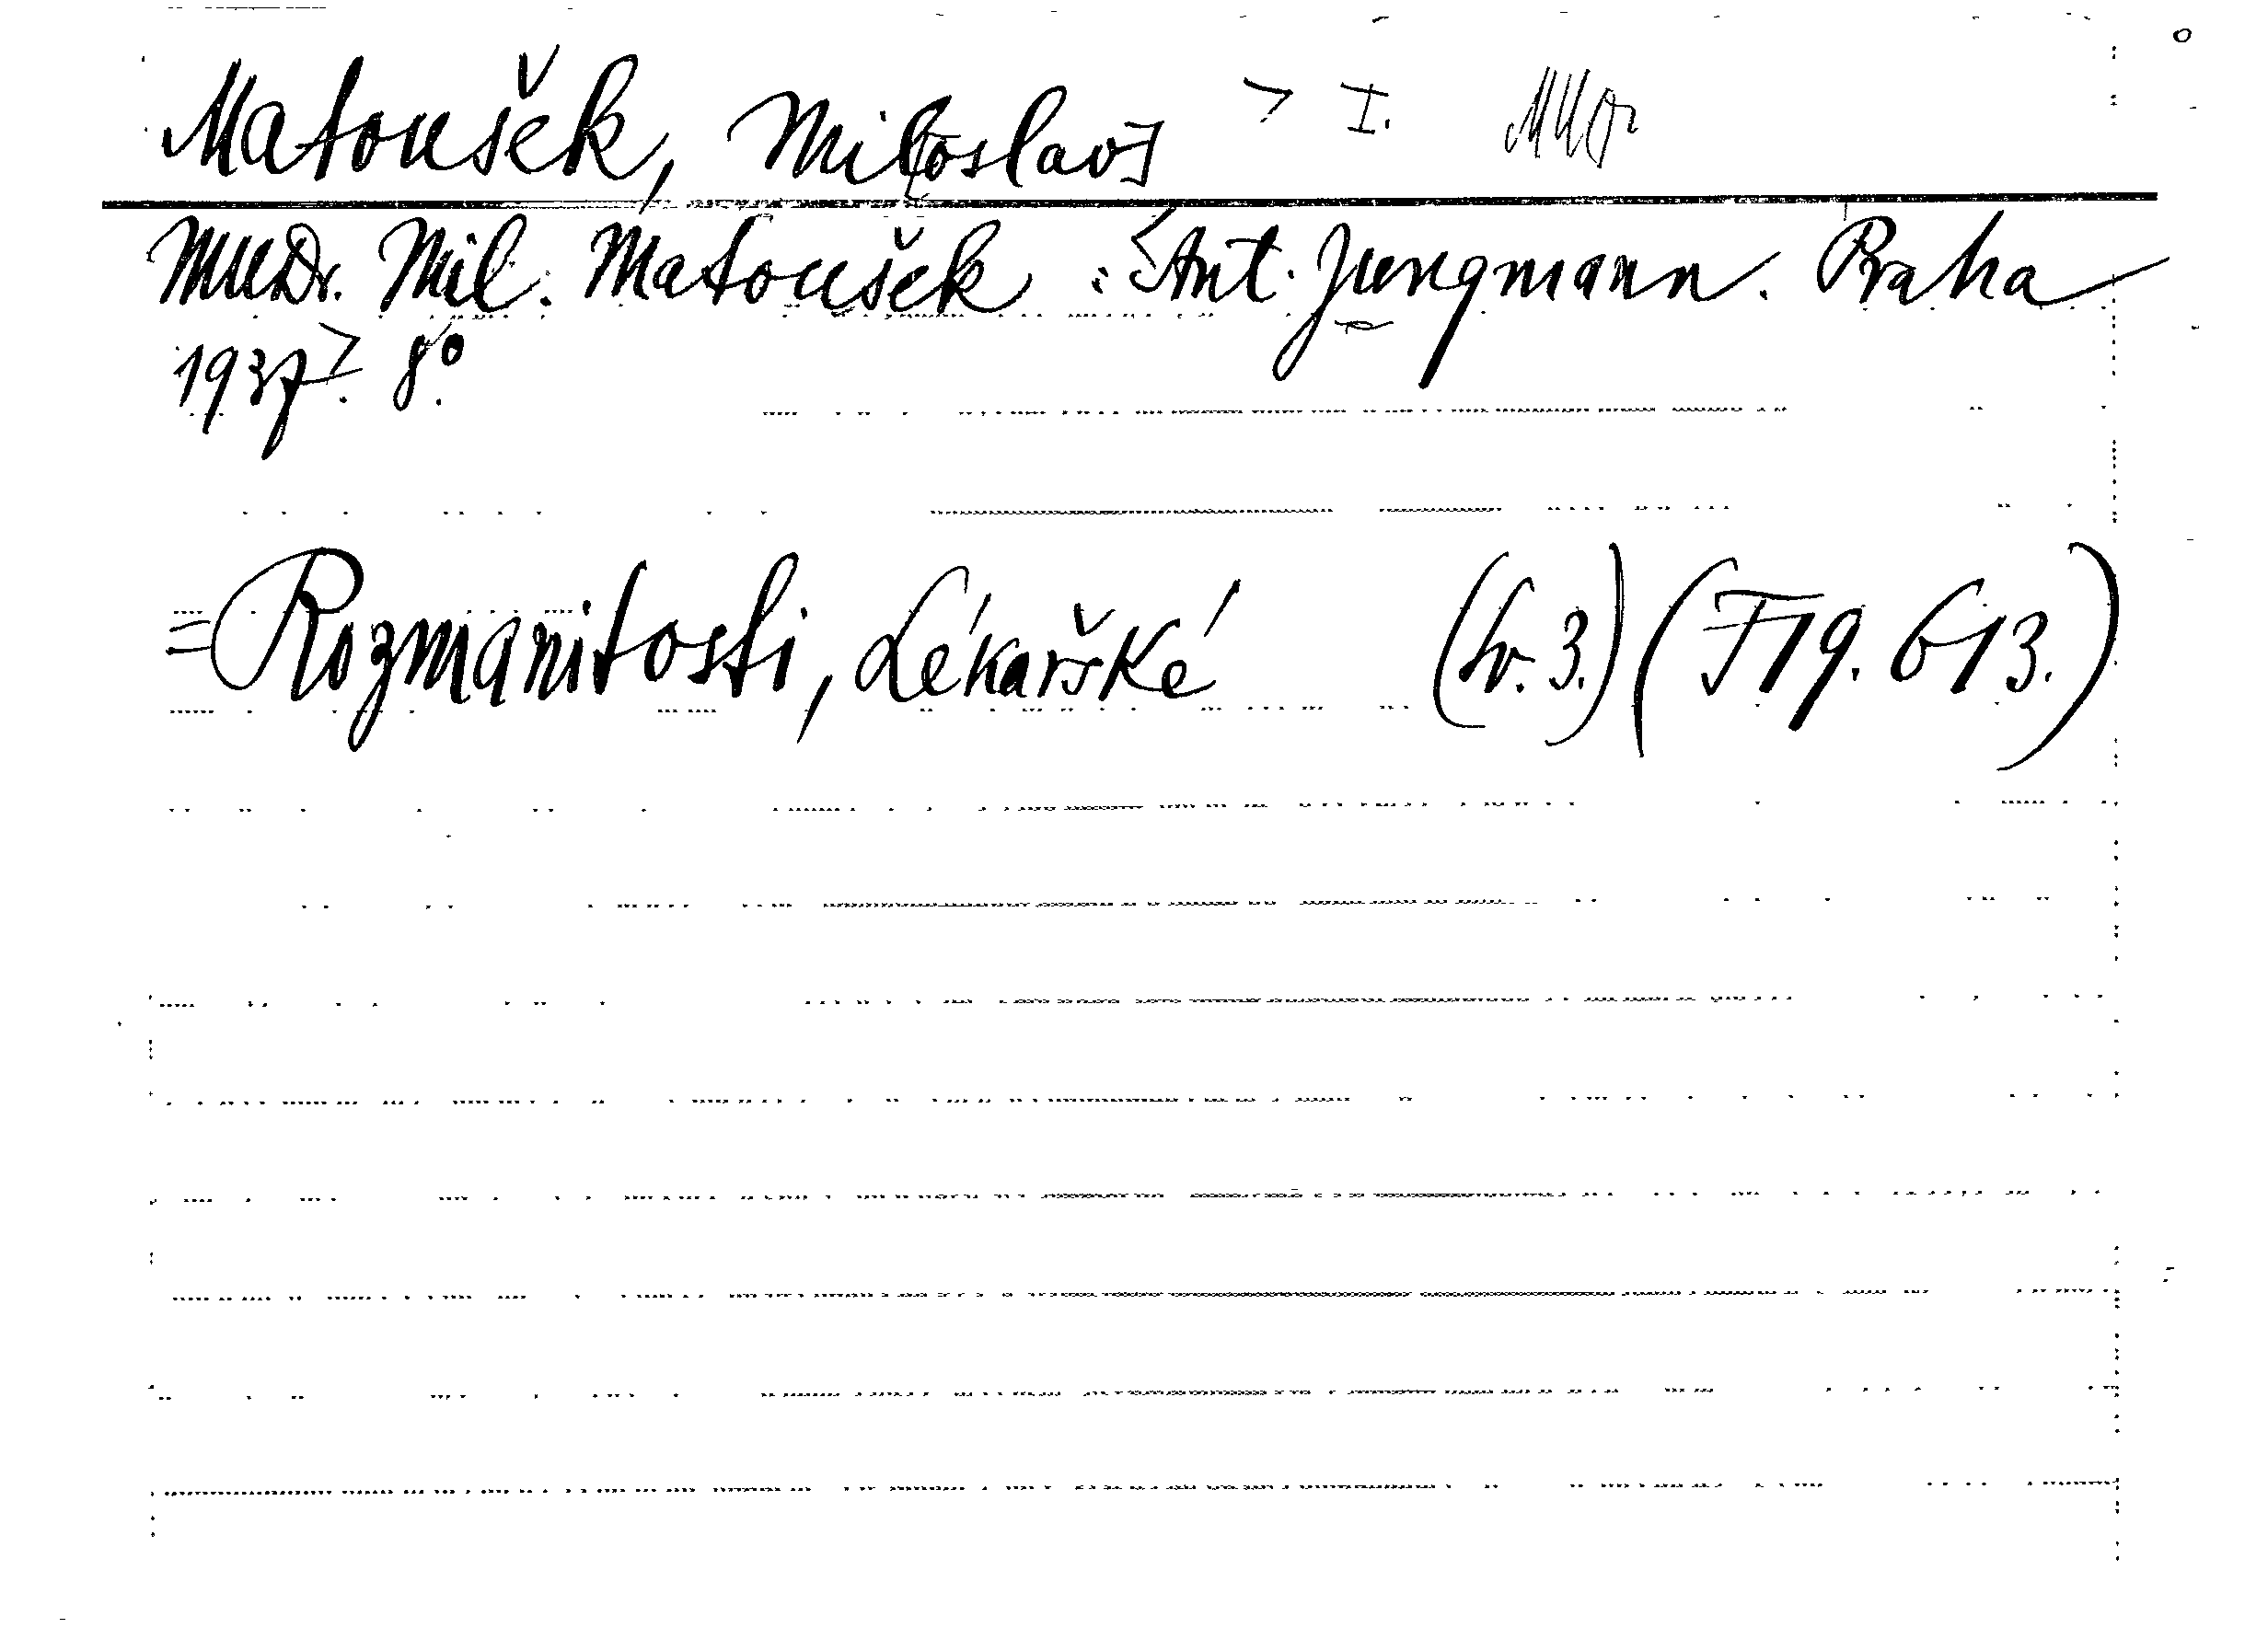 Matoušek, Mil[oslav] > I. MUDr
MUDr. Mil. Matoušek : <Ant. Jungmann. Praha
1937>. 8°.
= Rozmanitosti, Lékařské (Sv. 3.) (F 19. G 13.)